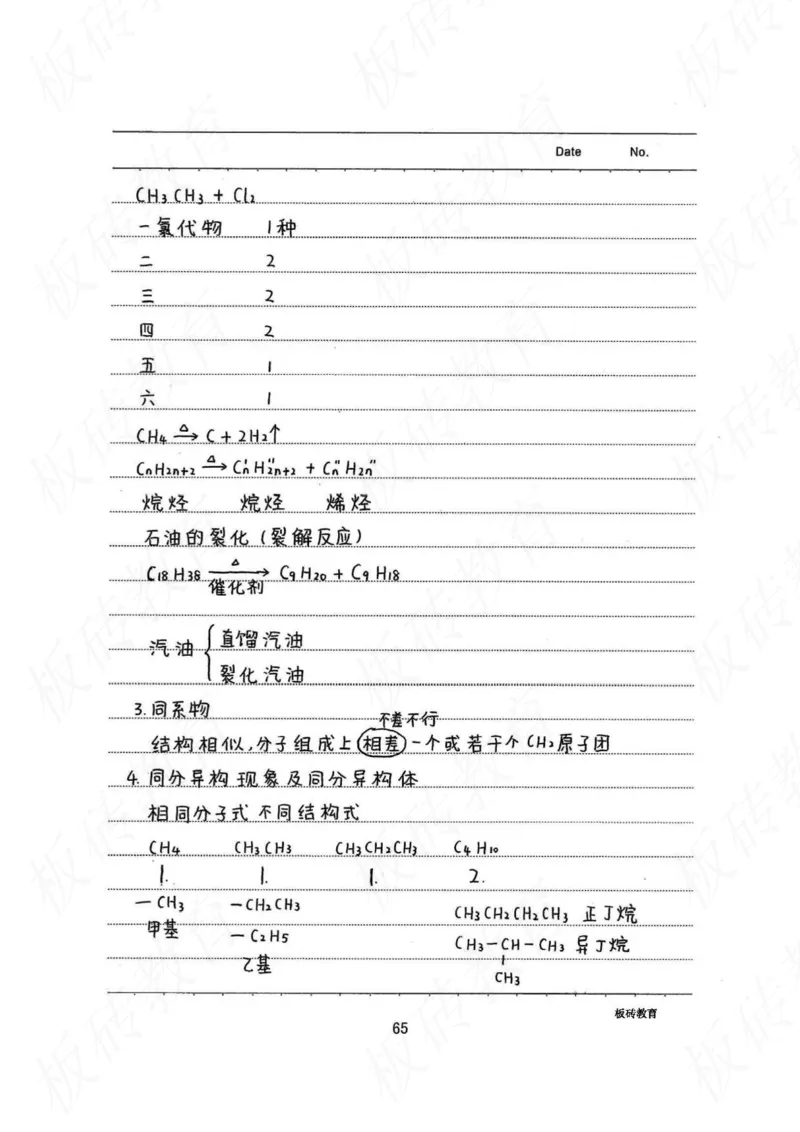 Date No.
CH₃CH₃ + Cl₂
一氯代物 1种
二 2
三 2
四 2
五 1
六 1
CH₄ —△→ C + 2H₂↑
CnH2n+2 —△→ Cn'H2n'+2 + Cn"H2n"
烷烃 烷烃 烯烃
石油的裂化(裂解反应)
C₁₈H₃₈ —△/催化剂→ C₉H₂₀ + C₉H₁₈
汽油 { 直馏汽油
裂化汽油
3.同系物
不差不行
结构相似,分子组成上相差一个或若干个CH₂原子团
4.同分异构现象及同分异构体
相同分子式不同结构式
CH₄ CH₃CH₃ CH₃CH₂CH₃ C₄H₁₀
1. 1. 1. 2.
—CH₃ —CH₂CH₃ CH₃CH₂CH₂CH₃ 正丁烷
甲基 —C₂H₅ CH₃—CH—CH₃ 异丁烷
乙基 CH₃
板砖教育
65